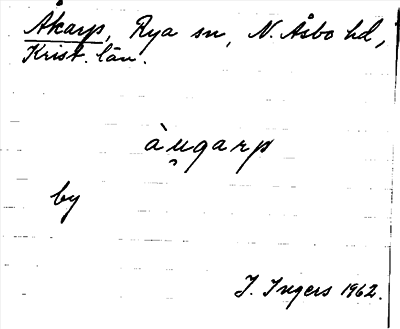 Åkarp, Rya sn, N. Åsbo hd,
Krist. län.
àu̯garp
by
I. Ingers 1962.